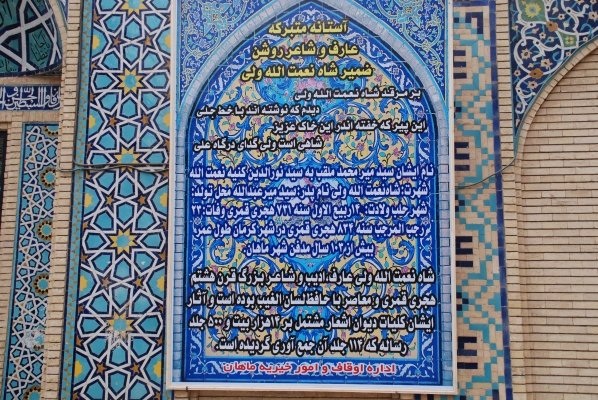 آستانه متبرکه
عارف و شاعر روشن
ضمیر شاه نعمت الله ولی
بر مرقد شاه نعمت الله ولی
دیدم که نوشته اند با خط جلی
این پیر که خفته اندر این خاک عزیز
شاهی است ولی گدای درگاه علی
نام ایشان سید میر محمد ملقب به سید نورالدین کنیه نعمت الله
شهرت: شاه نعمت الله ولی نام پدر: سید میر عبدالله محل تولد:
شهر حلب ولادت: ربیع الاول سنه هجری قمری وفات: ۲۳
رجب المرجب سنه ۸۳۲ هجری قمری در شهر کرمان طول عمر
بیش از ۱۰۰ سال مدفن شهر ماهان
شاه نعمت الله ولی عارف ادیب و شاعر بزرگ قرن هشتم
هجری قمری و معاصر با حافظ لسان الغیب بوده است و آثار
ایشان کلیات دیوان اشعار مشتمل بر ۱۲ هزار بیت و ۵۰۰ جلد
رساله که ۱۱۴ جلد آن جمع آوری گردیده است.
اداره اوقاف و امور خیریه ماهان